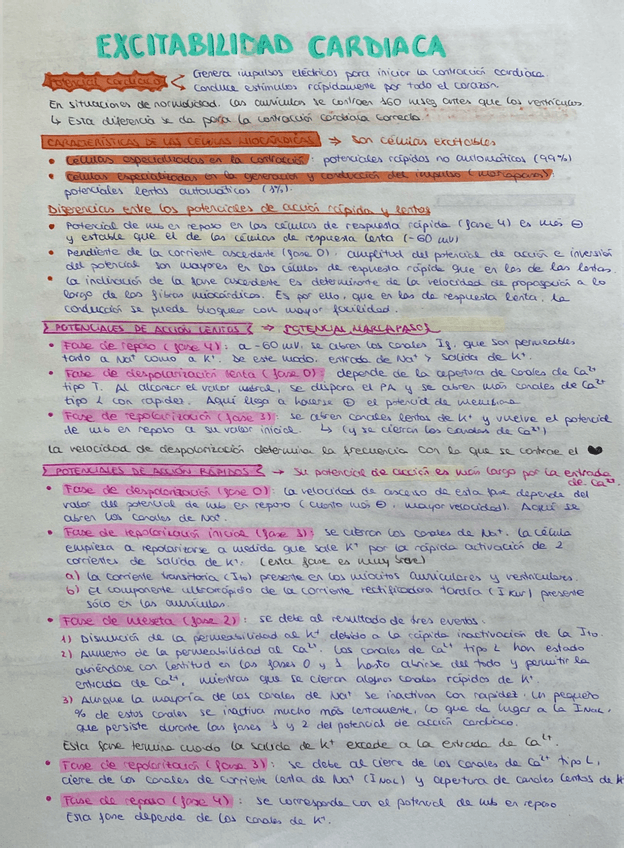 EXCITABILIDAD CARDIACA
Potencial cardiaco < Genera impulsos eléctricos para iniciar la contracción cardiaca.
Conduce estímulos rápidamente por todo el corazón.
En situaciones de normalidad, las aurículas se contraen 160 mseg antes que los ventrículos.
↳ Esta diferencia se da para la contracción cardiaca correcta.
CARACTERÍSTICAS DE LAS CÉLULAS MIOCÁRDICAS → Son células excitables
• Células especializadas en la contracción: potenciales rápidos no automáticos (99%)
• Células especializadas en la generación y conducción del impulso (marcapasos)
potenciales lentos automáticos (1%).
Diferencias entre los potenciales de acción rápidos y lentos
• Potencial de mb en reposo en las células de respuesta rápida (fase 4) es más ⊖
y estable que el de las células de respuesta lenta (-60 mV)
• Pendiente de la corriente ascendente (fase 0), amplitud del potencial de acción e inversión
del potencial son mayores en las células de respuesta rápida que en las de las lentas.
• La inclinación de la fase ascendente es determinante de la velocidad de propagación a lo
largo de las fibras miocárdicas. Es por ello, que en las de respuesta lenta, la
conducción se pueda bloquear con mayor facilidad.
POTENCIALES DE ACCIÓN LENTOS → POTENCIAL MARCAPASOS
• Fase de reposo (fase 4): a -60 mV. se abren los canales If, que son permeables
tanto a Na⁺ como a K⁺. De este modo, entrada de Na⁺ > salida de K⁺.
• Fase de despolarización lenta (fase 0): depende de la apertura de canales de Ca²⁺
tipo T. Al alcanzar el valor umbral, se dispara el PA y se abren más canales de Ca²⁺
tipo L con rapidez. Aquí llega a hacerse ⊕ el potencial de membrana.
• Fase de repolarización (fase 3): se abren canales lentos de K⁺ y vuelve el potencial
de mb en reposo a su valor inicial. ↳ (y se cierran los canales de Ca²⁺)
La velocidad de despolarización determina la frecuencia con la que se contrae el ♥
POTENCIALES DE ACCIÓN RÁPIDOS → Su potencial de acción es más largo por la entrada
de Ca²⁺.
• Fase de despolarización (fase 0): la velocidad de ascenso de esta fase depende del
valor del potencial de mb en reposo (cuanto más ⊖, mayor velocidad). Aquí se
abren los canales de Na⁺.
• Fase de repolarización inicial (fase 1): se cierran los canales de Na⁺. La célula
empieza a repolarizarse a medida que sale K⁺ por la rápida activación de 2
corrientes de salida de K⁺. (esta fase es muy breve)
a) La corriente transitoria (Ito) presente en los miocitos auriculares y ventriculares.
b) El componente ultrarrápido de la corriente rectificadora tardía (Ikur) presente
sólo en las aurículas.
• Fase de meseta (fase 2): se debe al resultado de tres eventos.
1) Disminución de la permeabilidad al K⁺ debido a la rápida inactivación de la Ito.
2) Aumento de la permeabilidad al Ca²⁺. Los canales de Ca²⁺ tipo L han estado
abriéndose con lentitud en las fases 0 y 1 hasta abrirse del todo y permitir la
entrada de Ca²⁺, mientras que se cierran algunos canales rápidos de K⁺.
3) Aunque la mayoría de los canales de Na⁺ se inactivan con rapidez. Un pequeño
% de estos canales se inactiva mucho más lentamente, lo que da lugar a la INaL,
que persiste durante las fases 1 y 2 del potencial de acción cardiaco.
Esta fase termina cuando la salida de K⁺ excede a la entrada de Ca²⁺.
• Fase de repolarización (fase 3): se debe al cierre de los canales de Ca²⁺ tipo L,
cierre de los canales de corriente lenta de Na⁺ (INaL) y apertura de canales lentos de K
• Fase de reposo (fase 4): se corresponde con el potencial de mb en reposo
Esta fase depende de los canales de K⁺.